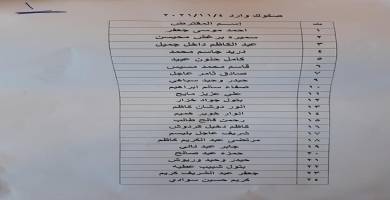 ١
صكوك وارد ٢٠٢١/١١/٤
ت اسم المقترض
١ احمد موسى جعفر
٢ سميره برغش محيسن
٣ عبد الكاظم داخل جميل
٤ دريد جاسم محمد
٥ كامل حنون عبيد
٦ قاسم محمد سيس
٧ صادق ثامر عاجل
٨ حيدر وحيد سباهي
١٠ صفاء سالم ابراهيم
١١ علي عزيز مايح
١٢ بتول جواد خزار
١٣ انور دوشان كاظم
١٤ انوار خوير خميم
١٥ رحمن فالح طالب
١٦ كاظم دخيل فردوش
١٧ شريف عاجل بليسم
١٨ مرتضى عبد الكريم كاظم
١٩ جابر عبد نالي
٢٠ حمزه عبد صالح
٢١ حيدر وحيد وريوش
٢٢ بتول شبيب عطيه
٢٣ جعفر عبد الشريف كريم
٢٤ كريم حسين سوادي